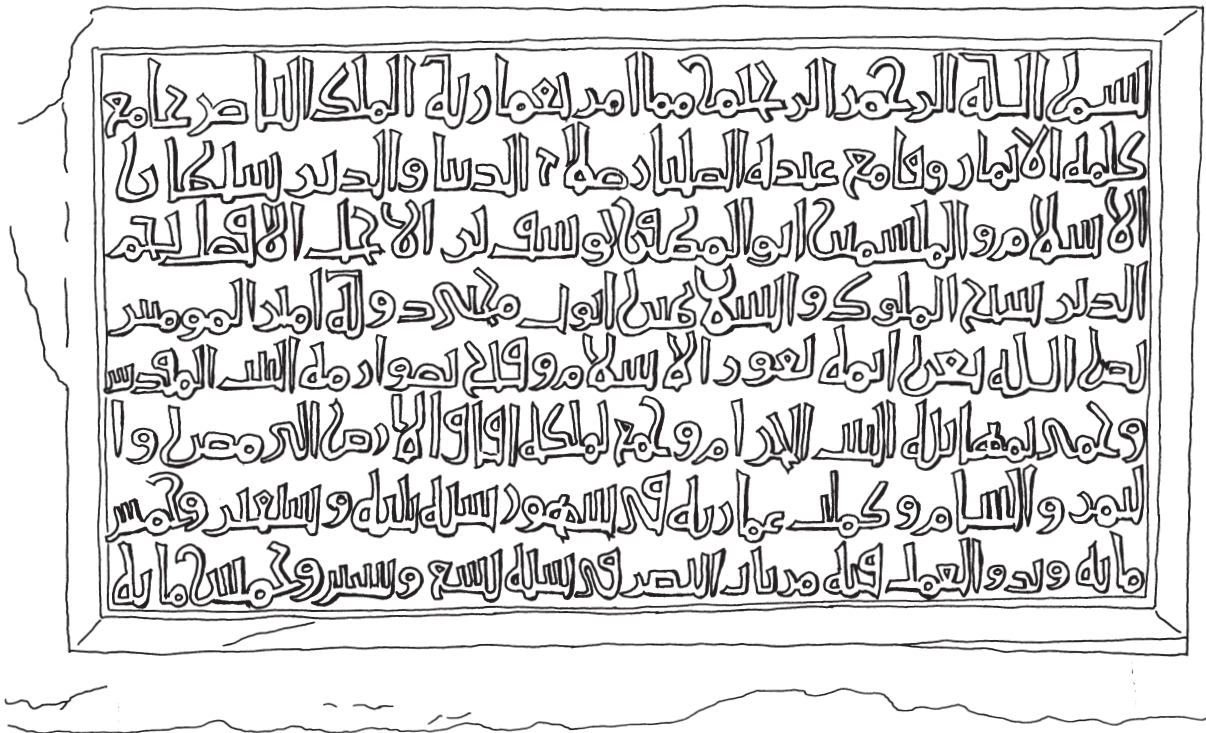 بسم الله الرحمن الرحيم مما امر بعمارته الملك الناصر جامع
كلمة الايمان وقامع عبدة الصلبان صلاح الدنيا والدين سلطان
الاسلام والمسلمين ابو المظفر يوسف بن الاجل الافضل نجم
الدين شيخ الملوك والسلاطين ايوب محيي دولة امير المومنين
نصر الله بعزائمه ثغور الاسلام وفتح بصوارمه البيت المقدس
وحمى بمهابته البيت الحرام وجمع لملكه افاق الارض الى مصر وا
ليمن والشام وكملت عمارته في شهور سنة ثلثة وسبعين وخمس
ماية وبدو العمل فيه من باب النصر في سنة تسع وستين وخمس ماية